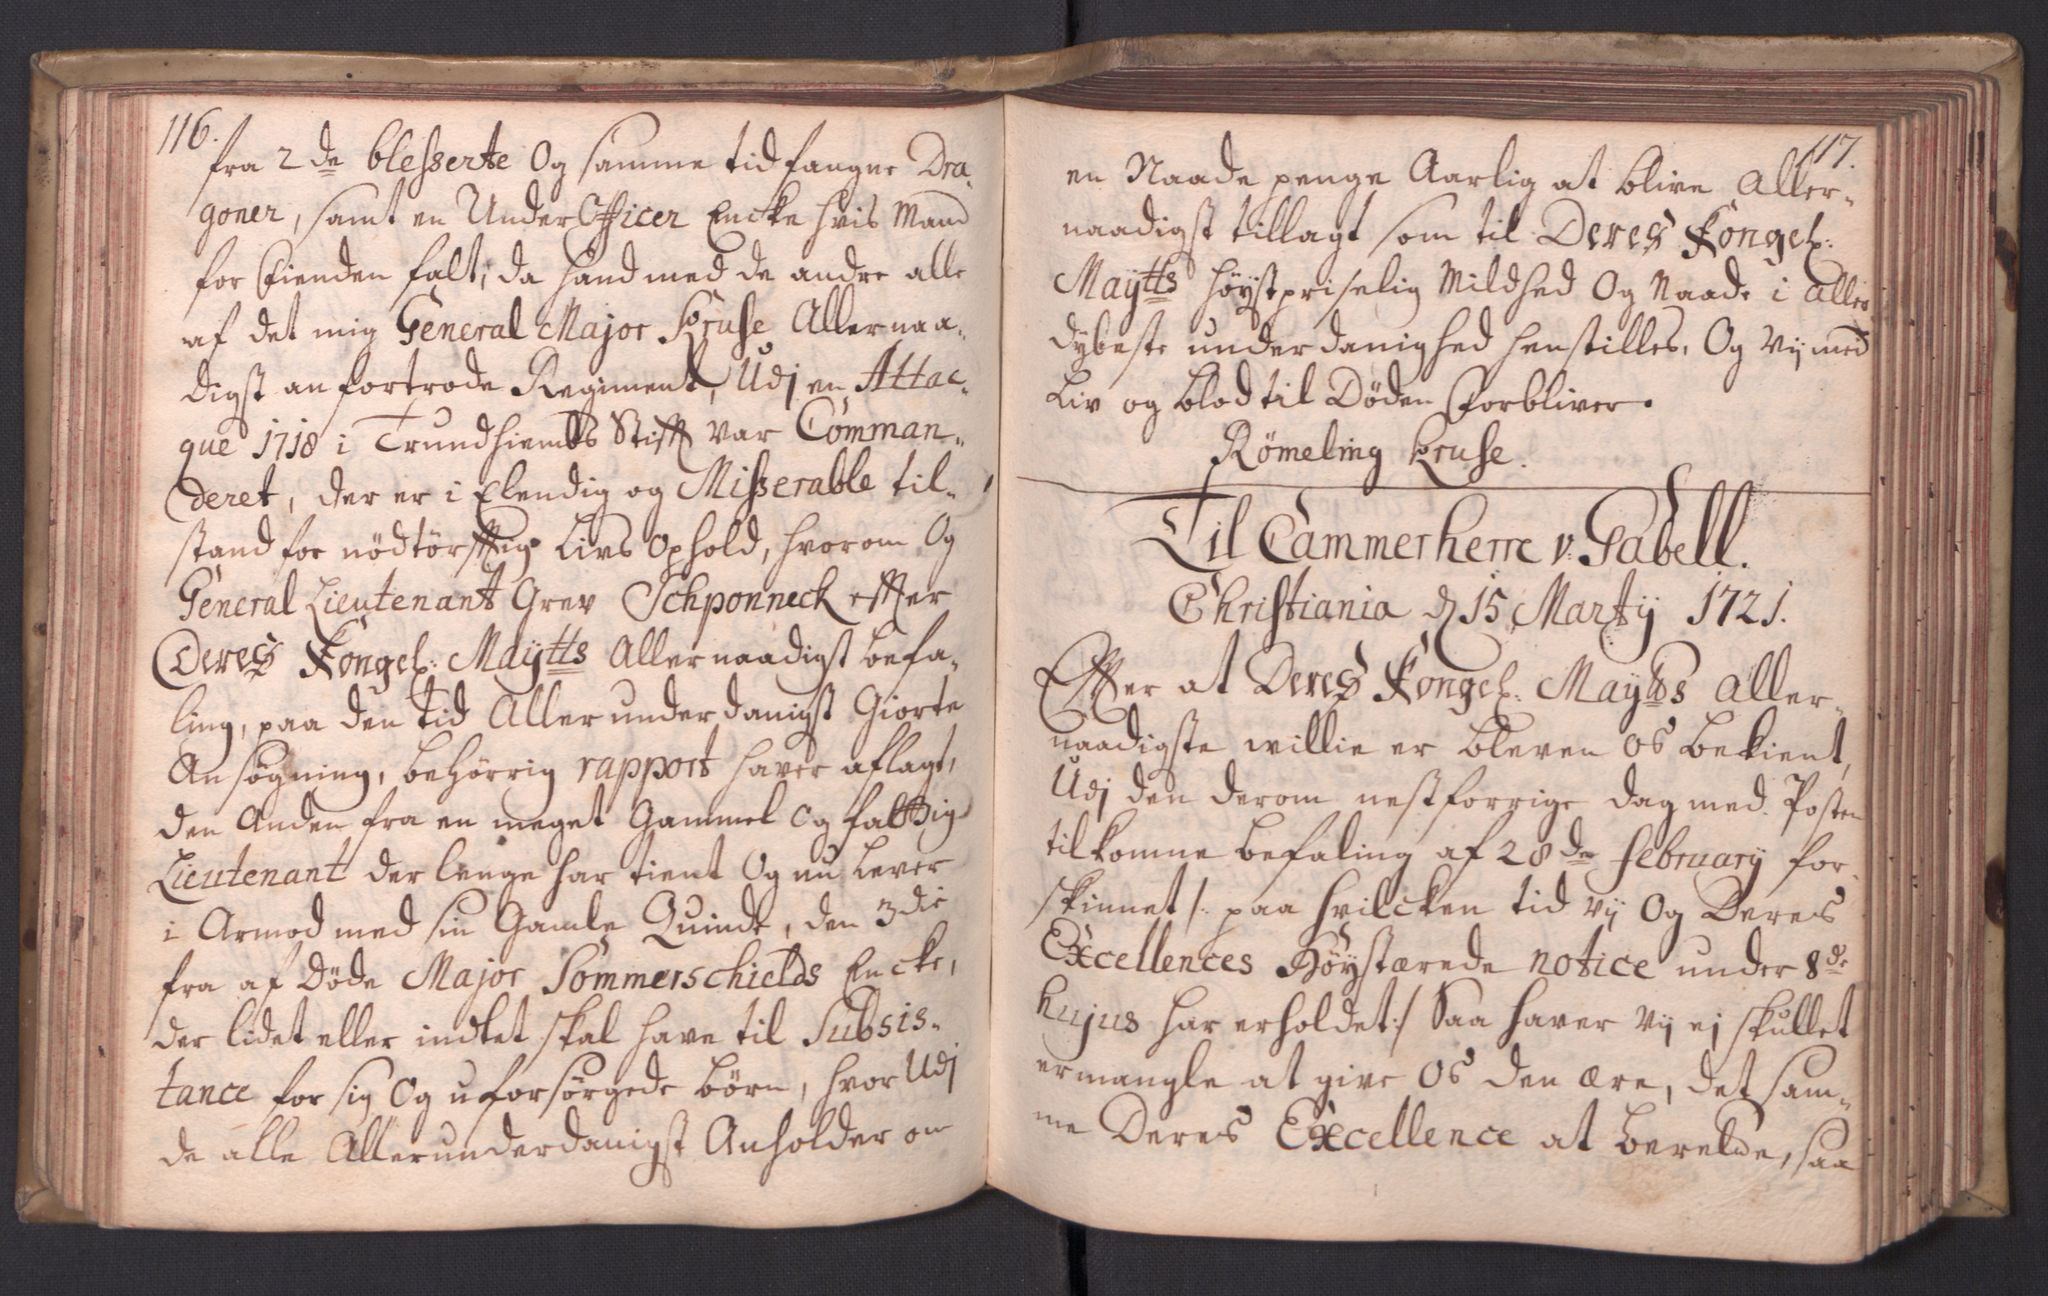 116.
fra 2de blesserte Og samme tid fangne Dra-
goner, samt en UnderOfficer Encke hvis Mand
for Fienden falt, da hand med de andre alle
af det mig General Major Kruse Allernaa-
digst anfortrode Regiment, Udj en Attac-
que 1718 i Trundhiembs Stifft var Comman-
deret, der er i Elendig og Misserable til-
stand for nödtörfftig Livs Ophold, hvorom Og
General Lieutenant Grev Schponneck effter
Deres Kongel: Maytts Allernaadigst befa-
ling, paa den tid Allerunderdanigst Giorte
Ansøgning, behørrig rapport haver aflagt,
den Anden fra en meget Gammel Og fattig
Lieutenant der lenge har tient Og nu Lever
i Armod med sin Gamle Quinde, den 3die
fra af Døde Major Sommerschields Encke,
der lidet eller indtet skal have til Subsis-
tance for sig Og uforsørgede børn, hvor Udj
de alle Allerunderdanigst Anholder om
117.
en Naade penge Aarlig at blive Aller-
naadigst tillagt som til Deres Kongel:
Maytts høystpriselig Mildhed Og Naade i aller
dybeste underdanighed henstilles, Og Vij med
Liv og blod til Døden Forbliver.
Römeling Kruse.
Til Cammerherre v: Gabell.
Christiania d 15 Martij 1721.
Effter at Deres Kongel: Maytts Aller-
naadigste willie er bleven Os bekient,
Udj den derom nestforrige dag med Posten
tilkomne befaling af 28de February for-
skinnet /: paa hvilcken tid Vij Og Deres
Excellences Høystærede notice under 8de
hujus har erholdet:/ Saa haver Vij ej skullet
ermangle at give Os den ære, det sam-
me Deres Excellence at berette, saa